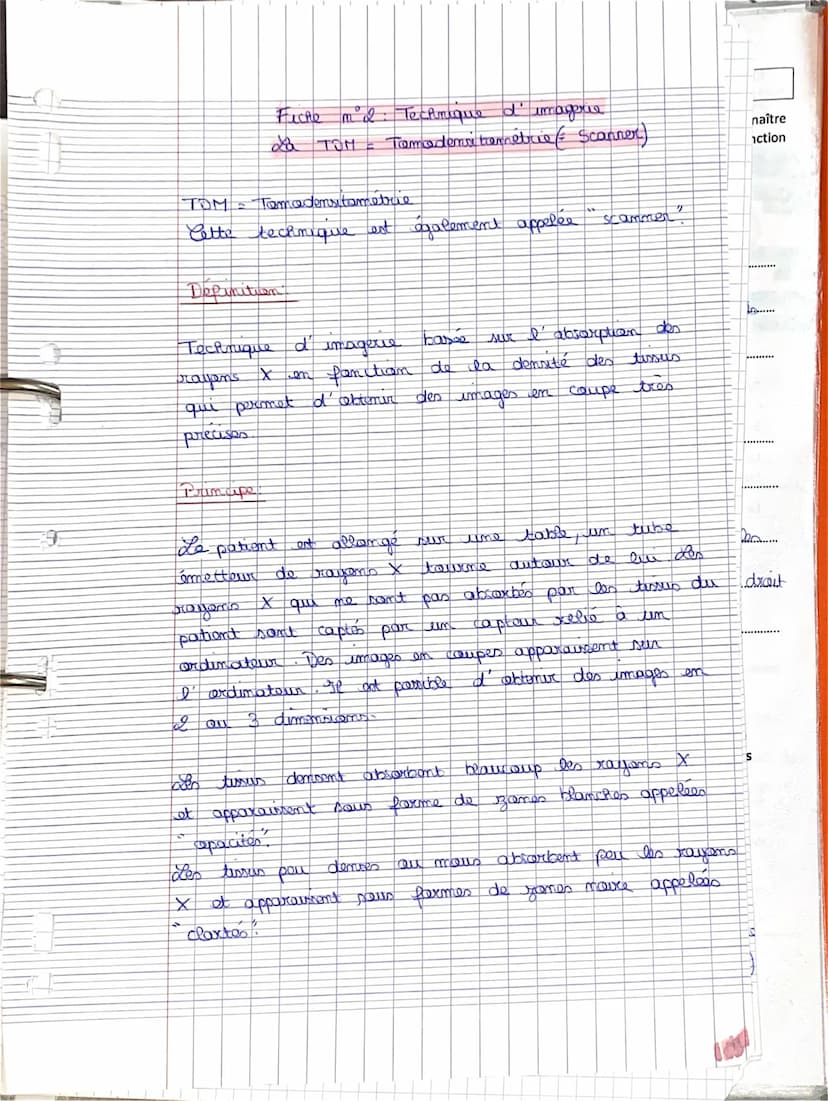 Fiche n°2 : Technique d'imagerie
La TDM = Tomodensitométrie (= Scanner)
TDM = Tomodensitométrie
Cette technique est également appelée "scanner".
Définition:
Technique d'imagerie basée sur l'absorption des
rayons X en fonction de la densité des tissus
qui permet d'obtenir des images en coupe très
précises.
Principe:
Le patient est allongé sur une table, un tube
émetteur de rayons X tourne autour de lui. Les
rayons X qui ne sont pas absorbés par les tissus du
patient sont captés par un capteur relié à un
ordinateur. Des images en coupes apparaissent sur
l'ordinateur. Il est possible d'obtenir des images en
2 ou 3 dimensions.
Les tissus densent absorbent beaucoup les rayons X
et apparaissent sous forme de zones blanches appelées
"opacités".
Les tissus peu denses ou mous absorbent peu les rayons
X et apparaissent sous formes de zones noire appelées
"clartés".
naître
nction
droit
s